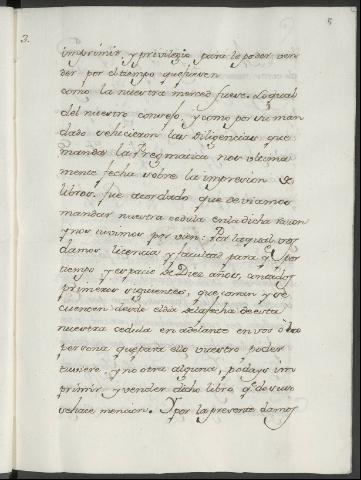 5
3.
imprimir, y privilegio para le poder ven
der por el tiempo que fuesen
como la nuestra merced fuese. Lo qual
del nuestro consejo, y como por su man
dado se hicieron las Diligencias que
manda la Pregmatica nos ultima
mente fecha sobre la impresion de
libros. fue acordado que deviamos
mandar nuestra cedula en la dicha razon
y nos tuvimos por vien: Por la qual vos
damos licencia y facultad para qe. por
tiempo y espacio de Diez años, contados
primeros siguientes, que corran y se
cuenten desde el dia de la fecha de esta
nuestra cedula en adelante en vos ò la
persona que para ello vuestro poder
tuviere. y no otra alguna, podays im
primir y vender dicho libro qe. de suso
se hace mencion. Y por la presente damos